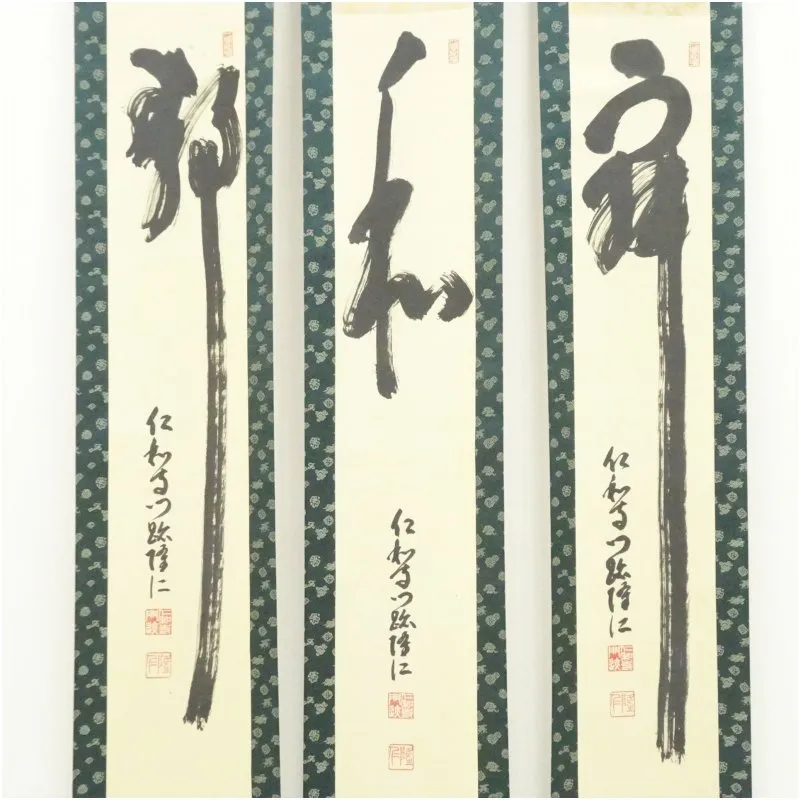 寧
仁和寺門跡隆仁
和
仁和寺門跡隆仁
静
仁和寺門跡隆仁